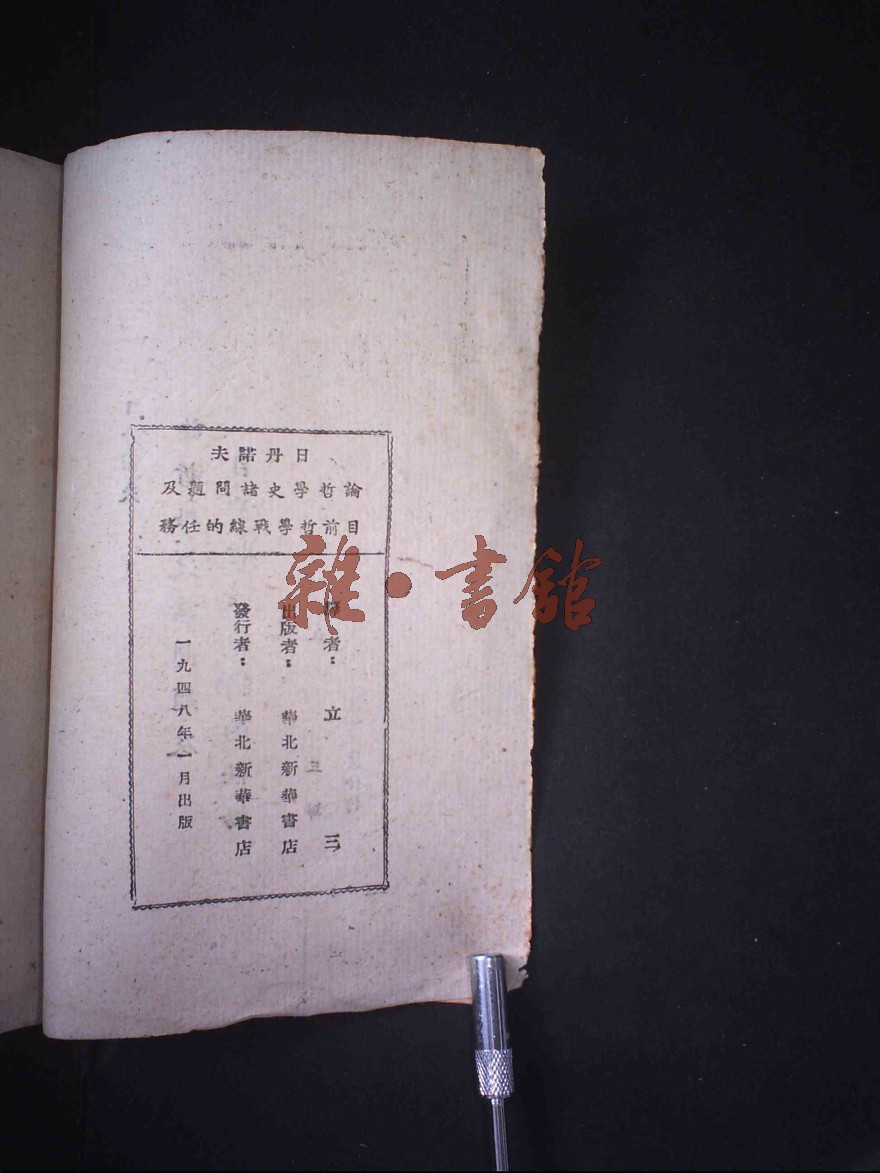 日丹諾夫
論哲學史諸問題及
目前哲學戰線的任務
者：立三
出版者：華北新華書店
發行者：華北新華書店
一九四八年一月出版
雜·書館